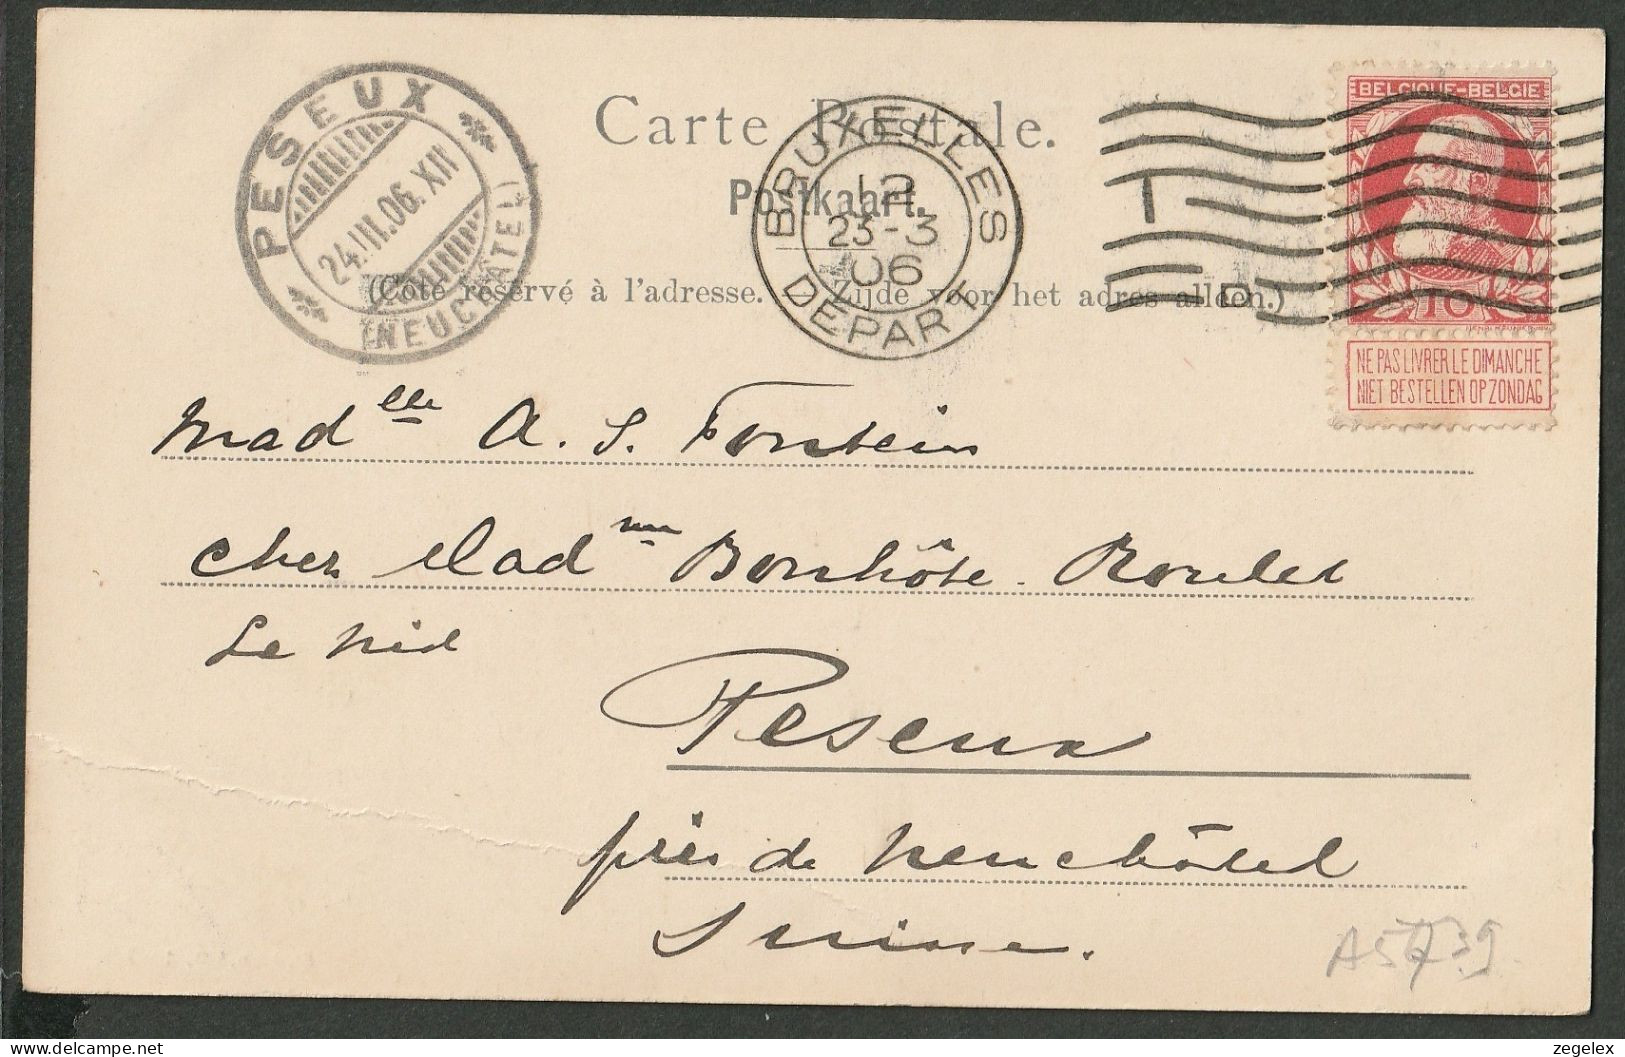 Carte Postale.
Postkaart.
(Côté réservé à l'adresse. Zijde voor het adres alleen.)
PESEUX
24.III.06.XII
(NEUCHÂTEL)
BRUXELLES
12
23-3
06
DEPART
BELGIQUE-BELGIE
10
NE PAS LIVRER LE DIMANCHE
NIET BESTELLEN OP ZONDAG
Mad elle A. S. Fontein
chez Mad me Bonhôte-Roulet
Le Nid
Peseux
près de Neuchâtel
Suisse.
zegelex